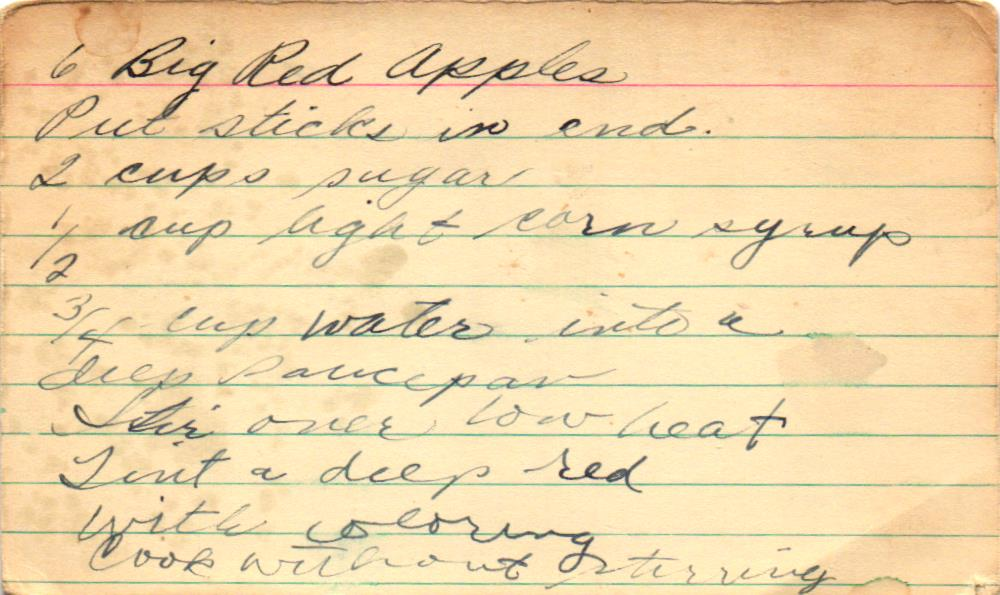 6 Big Red Apples
Put sticks in end.
2 cups sugar
1/2 cup light corn syrup
3/4 cup water into a
deep saucepan
Stir over low heat
Tint a deep red
with coloring
Cook without stirring